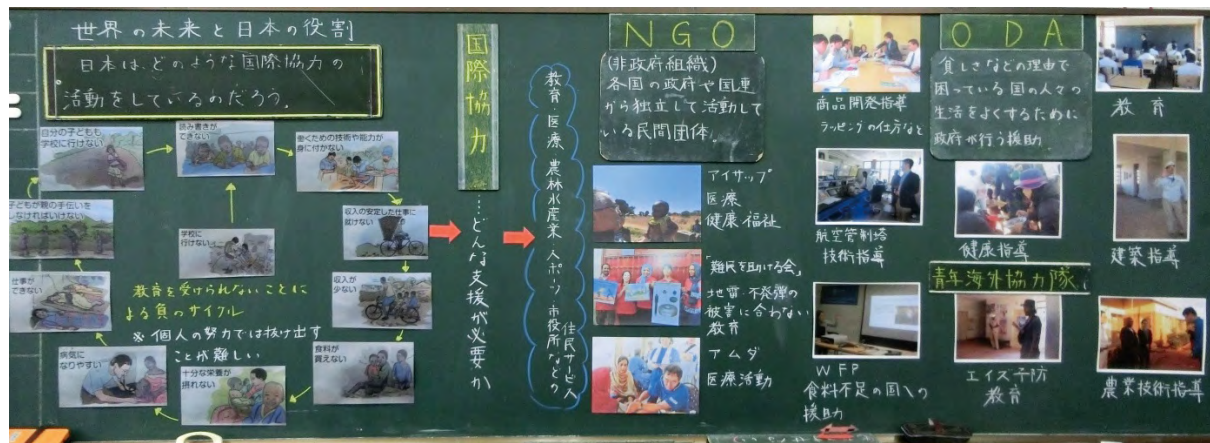 世界の未来と日本の役割
日本は、どのような国際協力の
活動をしているのだろう。
自分の子どもも
学校に行けない
読み書きが
できない
働くための技術や能力が
身に付かない
子どもが親の手伝いを
しなければいけない
学校に
行けない
収入の安定した仕事に
就けない
仕事が
できない
収入が
少ない
教育を受けられないことに
よる負のサイクル
※個人の努力では抜け出す
ことが難しい
病気に
なりやすい
十分な栄養が
摂れない
食料が
買えない
国際協力
…どんな支援が必要か
教育・医療・農林水産業・人
市役所などの
住民サービス
NGO
(非政府組織)
各国の政府や国連
から独立して活動して
いる民間団体。
アイサップ
医療
健康・福祉
「難民を助ける会」
地雷・不発弾の
被害に合わない
教育
アムダ
医療活動
商品開発指導
ラッピングの仕方など
航空管制塔
技術指導
WFP
食料不足の国への
援助
ODA
貧しさなどの理由で
困っている国の人々の
生活をよくするために
政府が行う援助
健康指導
青年海外協力隊
エイズ予防
教育
教育
建築指導
農業技術指導